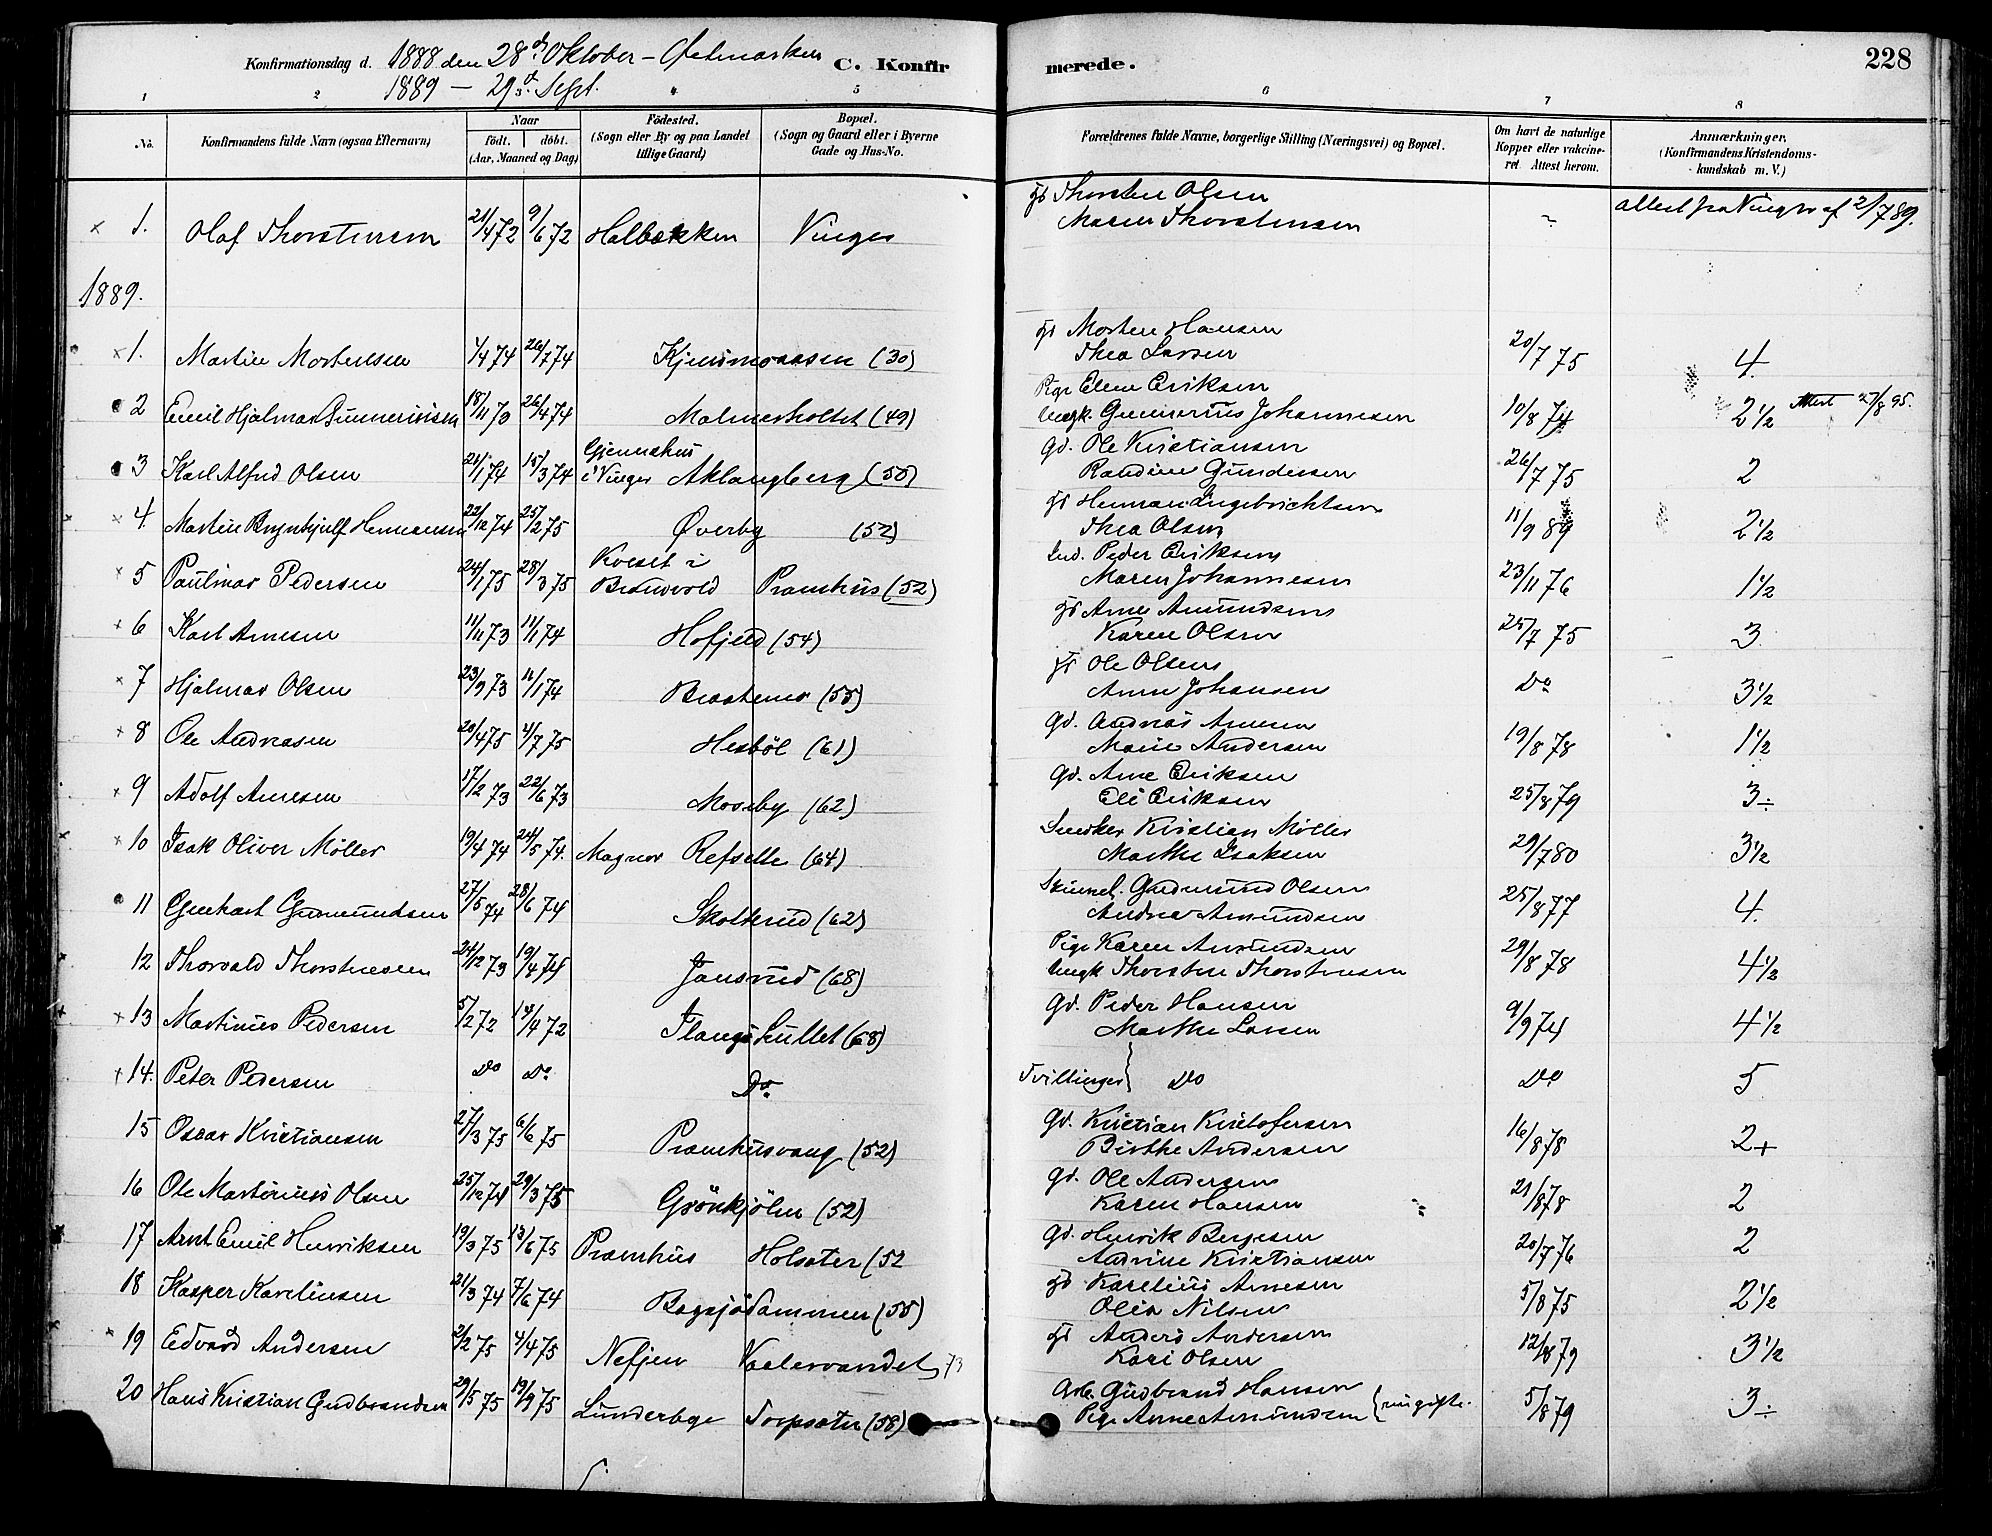 Konfirmationsdag d. 1888 den 28de Oktober – Østmarken
1889 – 29d. Sept.
C. Konfirmerede.
228
1 2 4 5 6 7 8
No.
Konfirmandens fulde Navn (ogsaa Efternavn)
Naar
født. døbt.
(Aar, Maaned og Dag)
Födested.
(Sogn eller By og paa Landet
tillige Gaard)
Bopæl.
(Sogn og Gaard eller i Byerne
Gade og Hus-No.
Forældrenes fulde Navne, borgerlige Stilling (Næringsvei) og Bopæl.
Om havt de naturlige
Kopper eller vakcine-
ret. Attest herom.
Anmærkninger,
(Konfirmandens Kristendoms-
kundskab m. V.)
Thorsten Olsen
× 1. Olaf Thorstensen 21/4 72 9/6 72 Holbækken Vinger Maren Thorstensen ~ attest fra Vinger af 2/7 89.
1889.
Morten Hansen
× 1. Martin Mortensen 1/4 74 26/7 74 Kjensmoaasen (30) Thea Larsen 20/7 75 4.
Pige Elene Eriksen
2 Emil Hjalmar Gunneriusen 18/11 73 26/4 74 Malmerholtet (49) Ungk. Gunnerius Johannesen 10/8 74 2 1/2 Attest 27/8 95.
Gjennshus Gd. Ole Kristiansen
3 Karl Alfred Olsen 21/1 74 15/3 74 i Vinger Aklangberg (50) Randine Gundersen 26/7 75 2
Herman Ingebrichtsen
× 4. Martin Brynhjulf Hermansen 22/12 74 25/2 75 Øverby (52) Thea Olsen 11/9 89 2 1/2
Kveset i Ind. Peder Eriksen
× 5 Paulinar Pedersen 24/1 75 28/3 75 Brandvold Pramhus (52) Maren Johannesen 23/11 76 1 1/2
Arne Amundsen
× 6 Karl Arnesen 11/11 73 11/1 74 Hofjeld (54) Karen Olsen 25/7 75 3
Ole Olsen
× 7 Hjalmar Olsen 23/9 73 11/1 74 Braatemo (55) Anne Johansen Do 3 1/2
Gd. Andreas Arnesen
× 8 Ole Andreasen 20/4 75 4/7 75 Hesböl (61) Marie Andersen 19/8 78 1 1/2
Gd. Arne Eriksen
× 9 Adolf Arnesen 17/2 73 22/6 73 Moseby (62) Eli Eriksen 25/8 79 3÷
Snedker Kristian Möller
× 10 Isak Oliver Möller 19/4 74 24/5 74. Magnor Refselle (64) Marthe Isaksen 29/7 80 3 1/2
Gudmund Olsen
11 Gerhart Gudmundsen 27/5 74 28/6 74 Skotterud (62) Andrea Amundsen 25/8 77 4.
Pige Karen Amundsen
12 Thorvald Thorstensen 24/12 73 19/4 74 Jansrud (68) Ungk Thorsten Thorstensen 29/8 78 4 1/2
Gd. Peder Hansen
× 13 Martinus Pedersen 5/2 72 14/4 72 Flangshullet (68) Marthe Larsen 9/9 74 4 1/2
× 14. Peter Pedersen Do Do Do Tvillinger } Do Do 5
Gd. Kristian Kristofersen
15 Oscar Kristiansen 27/3 75 6/6 75 Pramhusvang (52) Birthe Andersen 16/8 78 2+
Gd. Ole Andersen
16 Ole Martinius Olsen 25/12 74 29/3 75 Grönkjölen (52) Karen Hansen 21/8 78 2
Gd. Henrik Bergesen
17 Arnt Emil Henriksen 19/3 75 13/6 75 Pramhus Holsater (52 Andrine Kristiansen 20/7 76 2
Karelius Arnesen
18 Kasper Kareliusen 21/3 74 7/6 74 Bogsjödammen (55) Olia Nilsen 5/8 75 2 1/2
Anders Andersen
× 19 Edvard Andersen 2/2 75 4/4 75 Nefjen Vaalervandet 73 Kari Olsen 12/8 79 3 1/2
Arb. Gudbrand Hansen
20 Hans Kristian Gudbrandsen 29/5 75 19/9 75 Lunderbye Torpsater (58) Pige Anne Amundsen } ungifte. 5/8 79 3÷